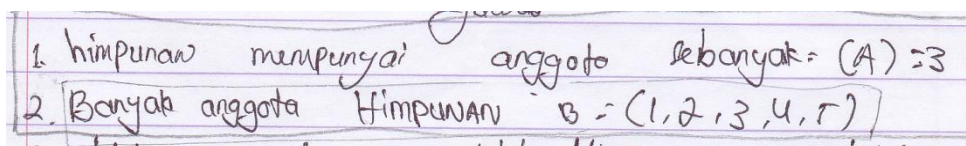 1. himpunan mempunyai anggota sebanyak = (A) = 3
2. Banyak anggota HimpuNAN B = (1, 2, 3, 4, 5)